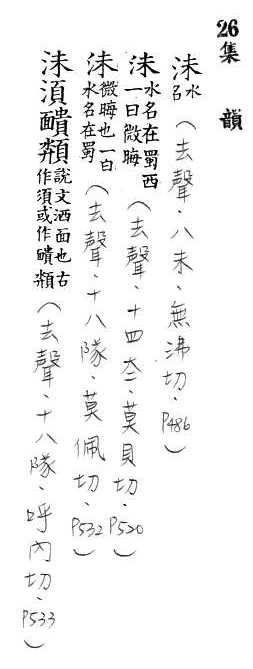 26集　韻
沬水名（去聲、八未、無沸切、P486）
沬水名在蜀西一曰微晦（去聲、十四夳、莫貝切、P520）
沬微晦也一曰水名在蜀（去聲、十八隊、莫佩切、P532）
沬湏靧䫭說文洒面也古作須或作靧䫭（去聲、十八隊、呼內切、P533）